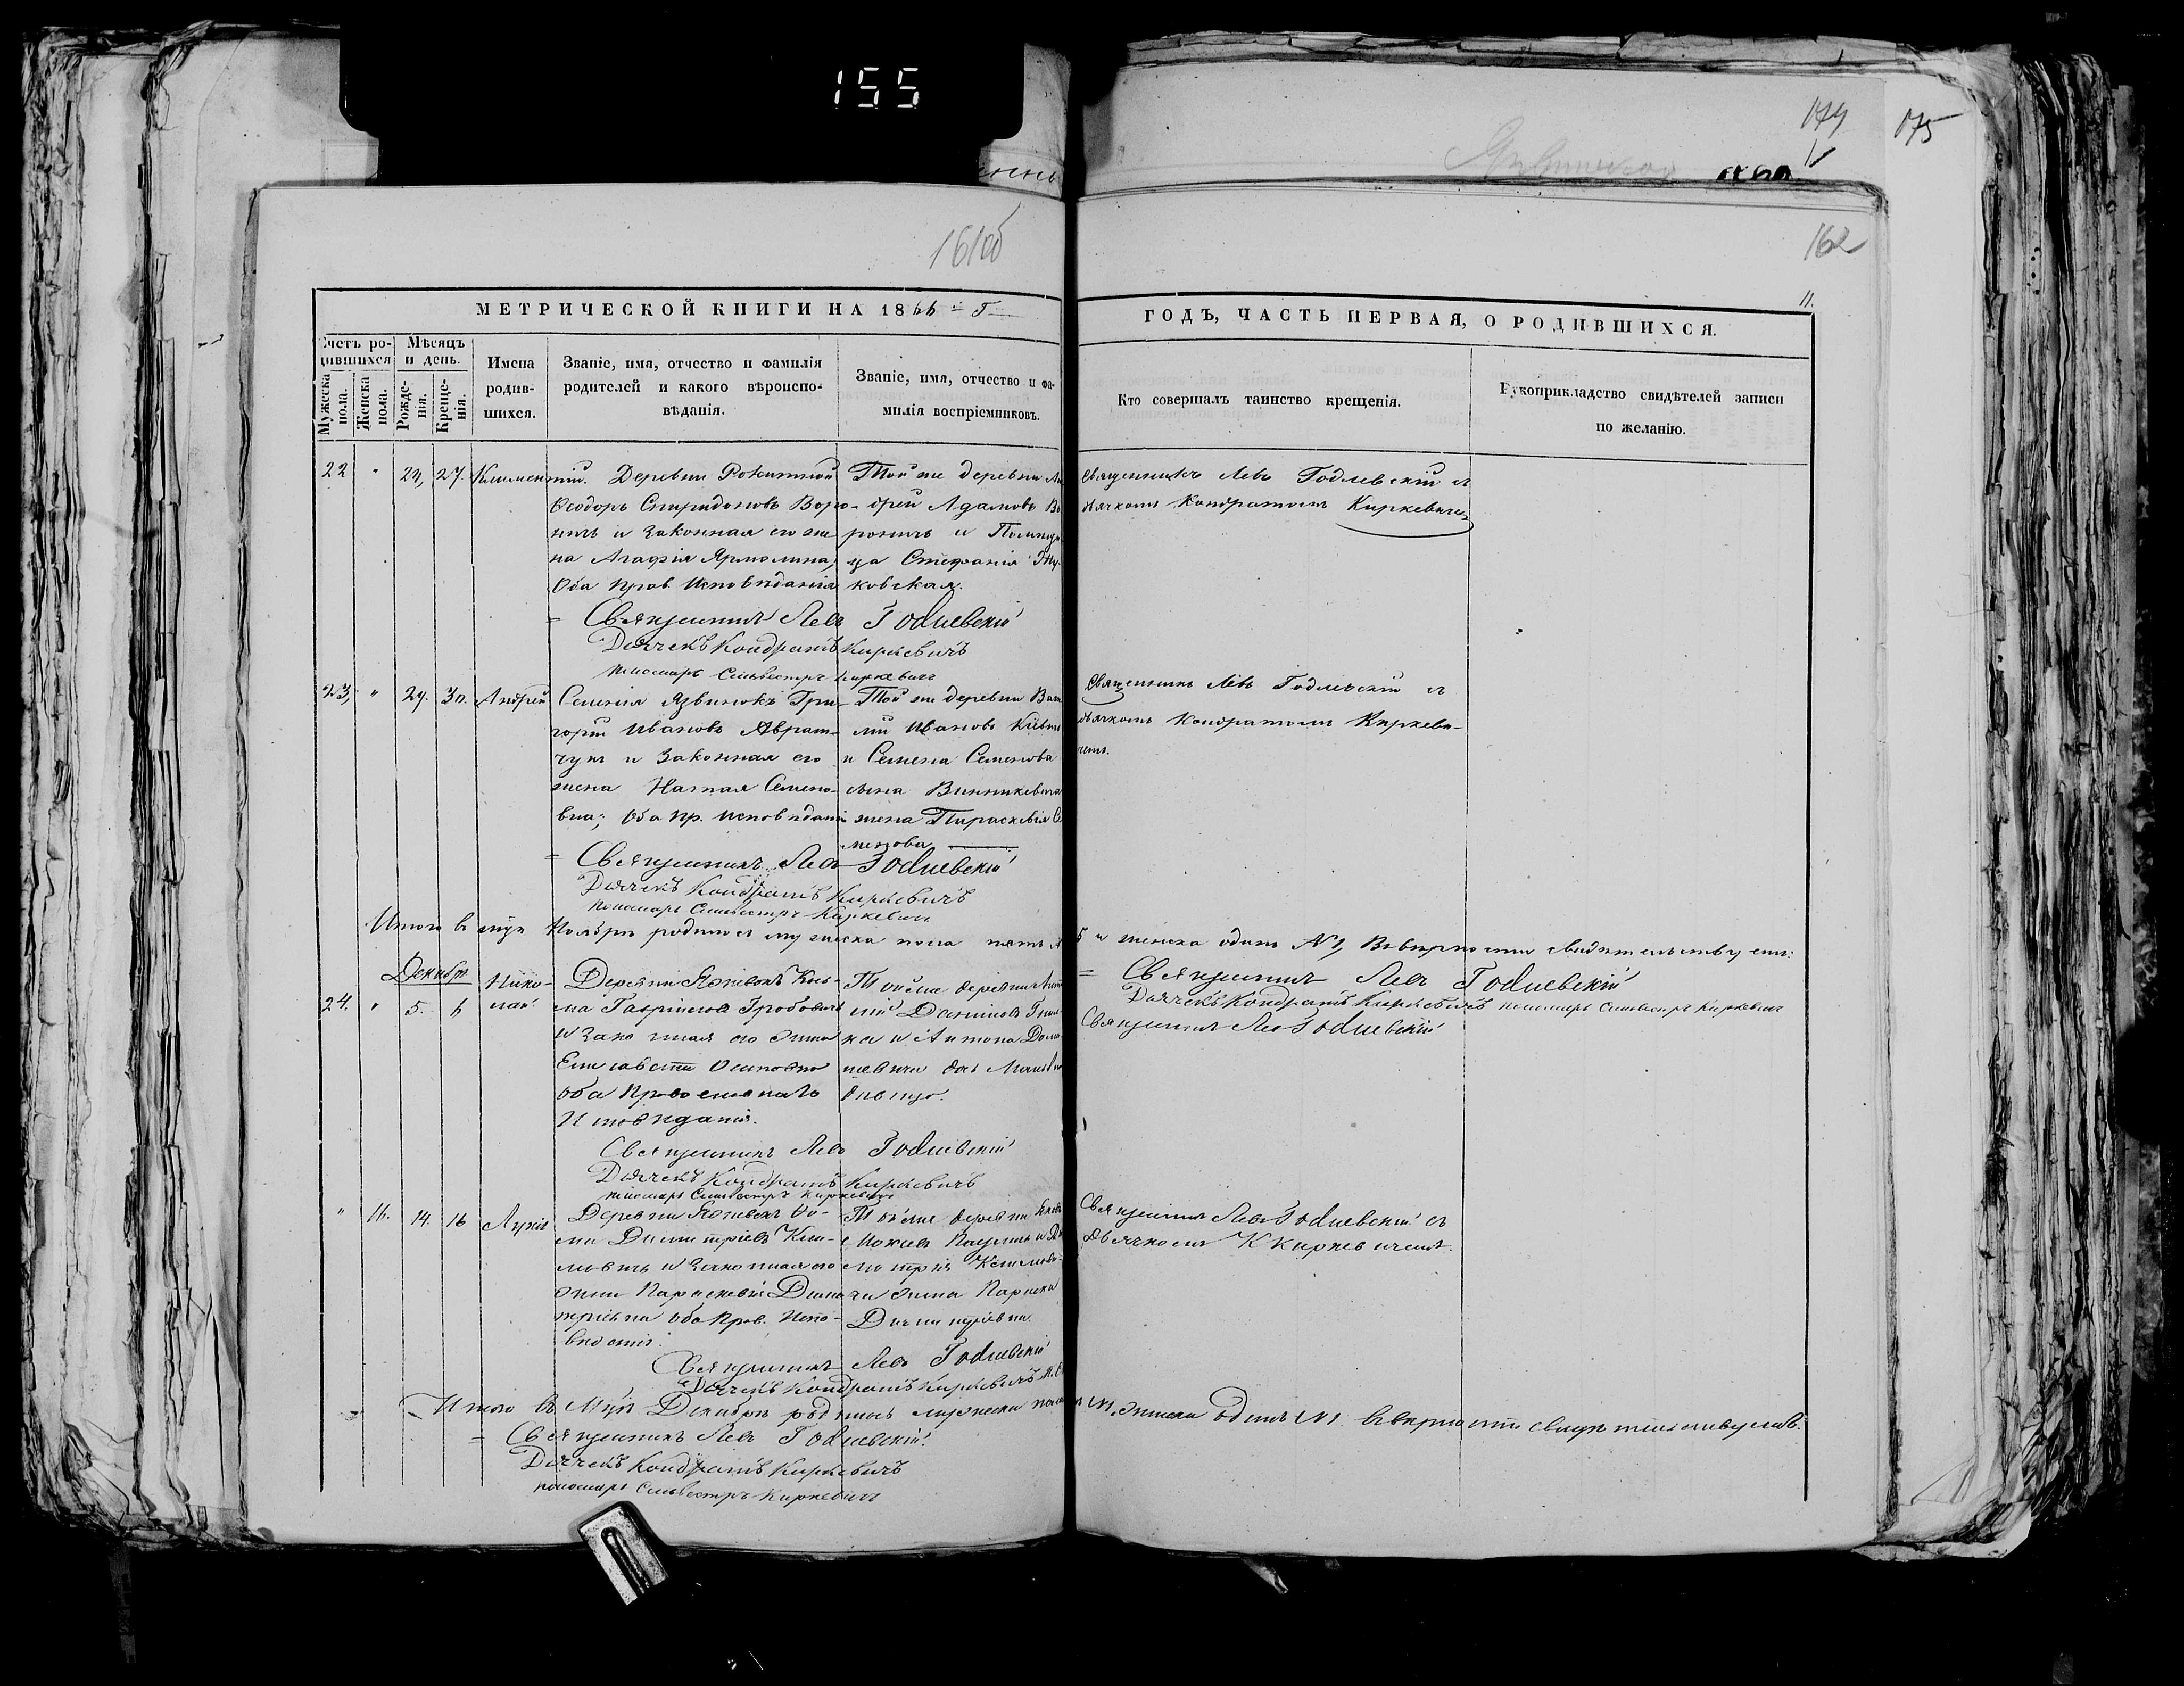 155
174
175
161об
162
11.
МЕТРИЧЕСКОЙ КНИГИ НА 1866 = Г
ГОДЪ, ЧАСТЬ ПЕРВАЯ, О РОДИВШИХСЯ.
Счетъ ро-
дившихся
Мужеска
пола.
Женска
пола.
Мѣсяцъ
и день.
Рожде-
нія.
Креще-
нія.
Имена
родив-
шихся.
Званіе, имя, отчество и фамилія
родителей и какого вѣроиспо-
вѣданія.
Званіе, имя, отчество и фа-
милія воспріемниковъ.
Кто совершалъ таинство крещенія.
Рукоприкладство свидѣтелей записи
по желанію.
22 " 27. Климентій.
Деревни Рокитной
Ѳеодоръ Спиридоновъ Воро-
ничъ и законная его же-
на Агафія Ярмолина,
Оба прав исповѣданія
Той же деревни Ан
дрей Адамовъ Во
роничъ и
ца Стефанія
ковская.
Священникъ Левъ Годлевскій съ
дьячкомъ Кондратомъ Киркевичемъ
Священникъ Левъ Годлевскій
Дьячекъ Кондратъ Киркевичъ
пономарь Сильвестръ Киркевичъ
23, " 29. 30. Андрей
Селенія Язвинокъ Гри-
горій Ивановъ Аврам-
чукъ и законная его
жена Семено-
вна; Оба пр. исповѣдані
Той же деревни
Ивановъ
и Семена Семенова
сына Винникевича
жена Параскевія Се
менова
Священникъ Левъ Годлевскій съ
дьячкомъ Кондратомъ Киркеви-
чемъ.
Священникъ Левъ Годлевскій
Дьячекъ Кондратъ Киркевичъ
пономарь Сильвестръ Киркевичъ
Итого въ Ноябрѣ родилось мужеска пола пять №
5 и женска одинъ №1, Въ вѣрности свидѣтельствуемъ:
= Священникъ Левъ Годлевскій
Дьячекъ Кондратъ Киркевичъ пономарь Сильвестръ Киркевичъ
Декабр
24. " 5. 6
Нико-
лай
Деревни
ма Гавріиловъ Гробовичъ
и законная его жена
Осиповна
оба Православнаго
Исповѣданія.
Той же деревни
Даниловъ
ка и Антона
Священникъ Левъ Годлевскій
Священникъ Левъ Годлевскій
Дьячекъ Кондратъ Киркевичъ
пономарь Сильвестръ Киркевичъ
" 16. 14. 16 Лукія
Деревни
ма Димитріевъ
и законная его
жена Параскевія Дими
тріевна оба Прав. Испо-
вѣданія.
Той же деревни
жена Параскев
Димитріевна.
Священникъ Левъ Годлевскій съ
Дьячкомъ К Киркевичемъ.
Священникъ Левъ Годлевскій
Дьячекъ Кондратъ Киркевичъ
Итого въ Декабрѣ родилось мужеска пола
№1, женска одинъ №1. Въ вѣрности свидѣтельствуемъ.
= Священникъ Левъ Годлевскій.
Дьячекъ Кондратъ Киркевичъ
пономарь Сильвестръ Киркевичъ